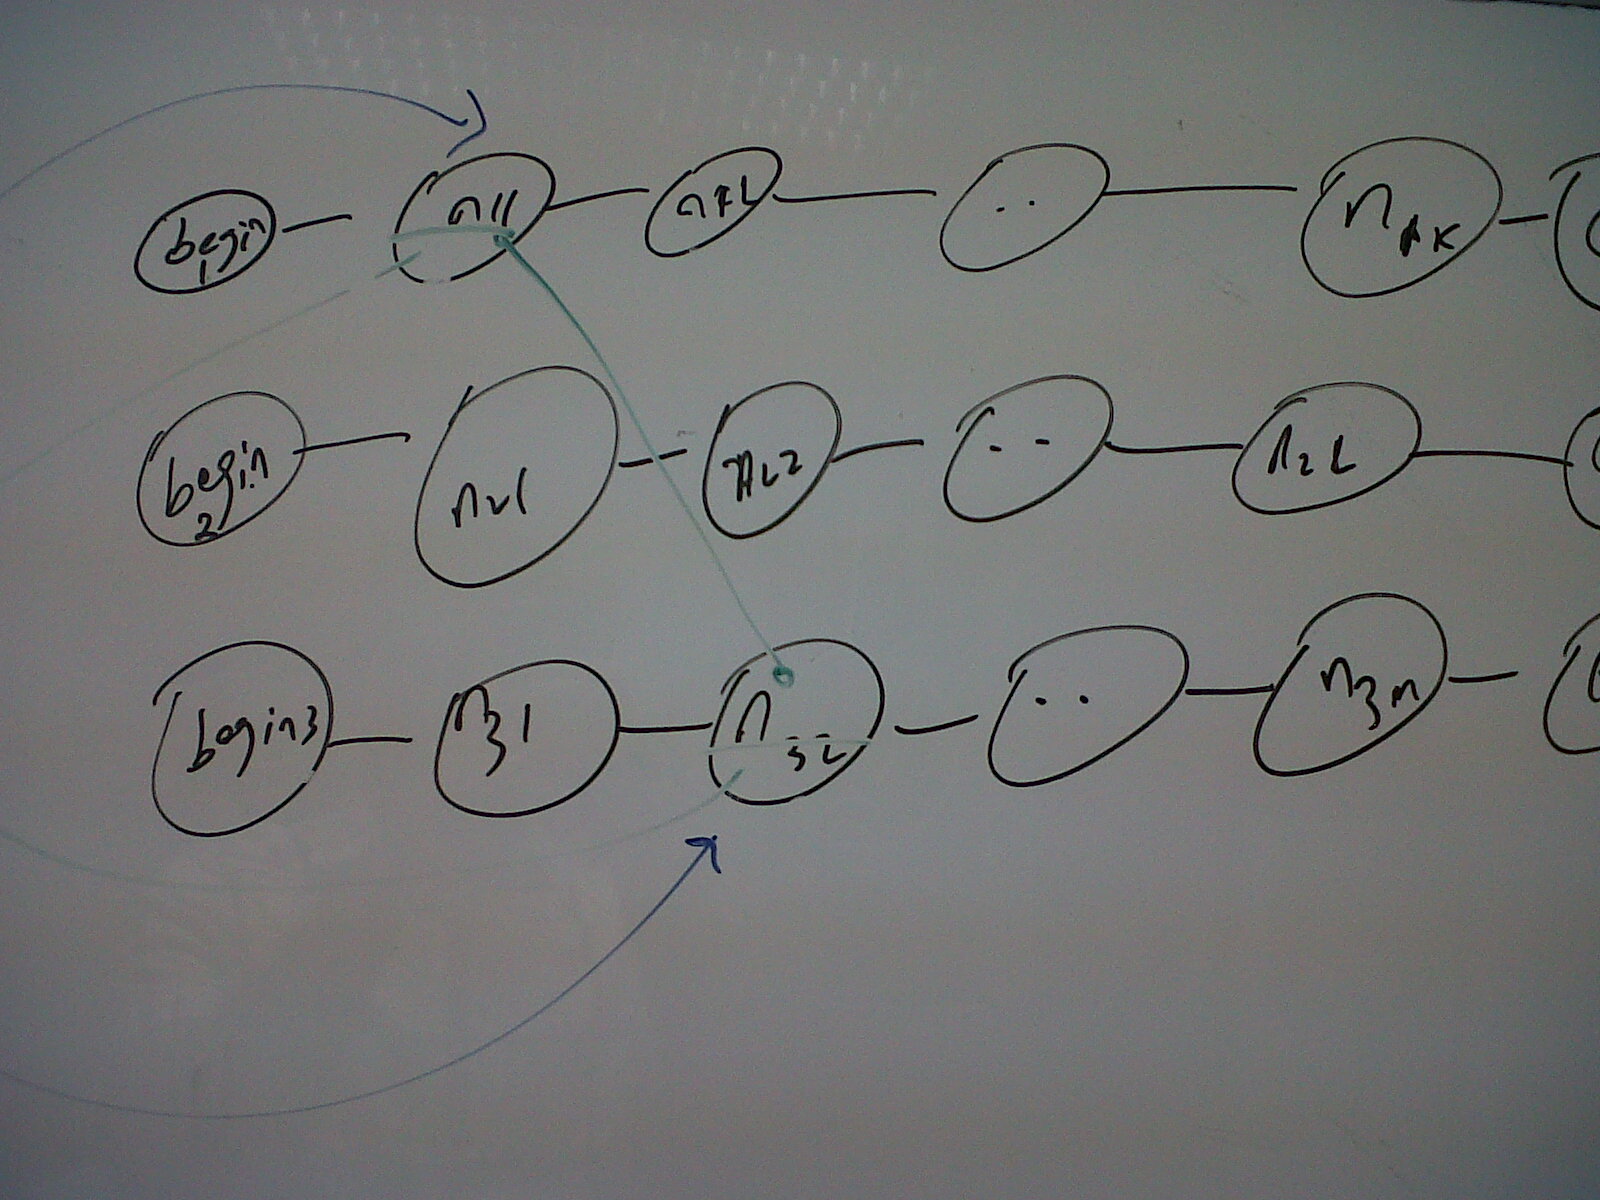 begin1 n11 n12 .. n1K
begin2 n21 n22 .. n2L
begin3 n31 n32 .. n3m